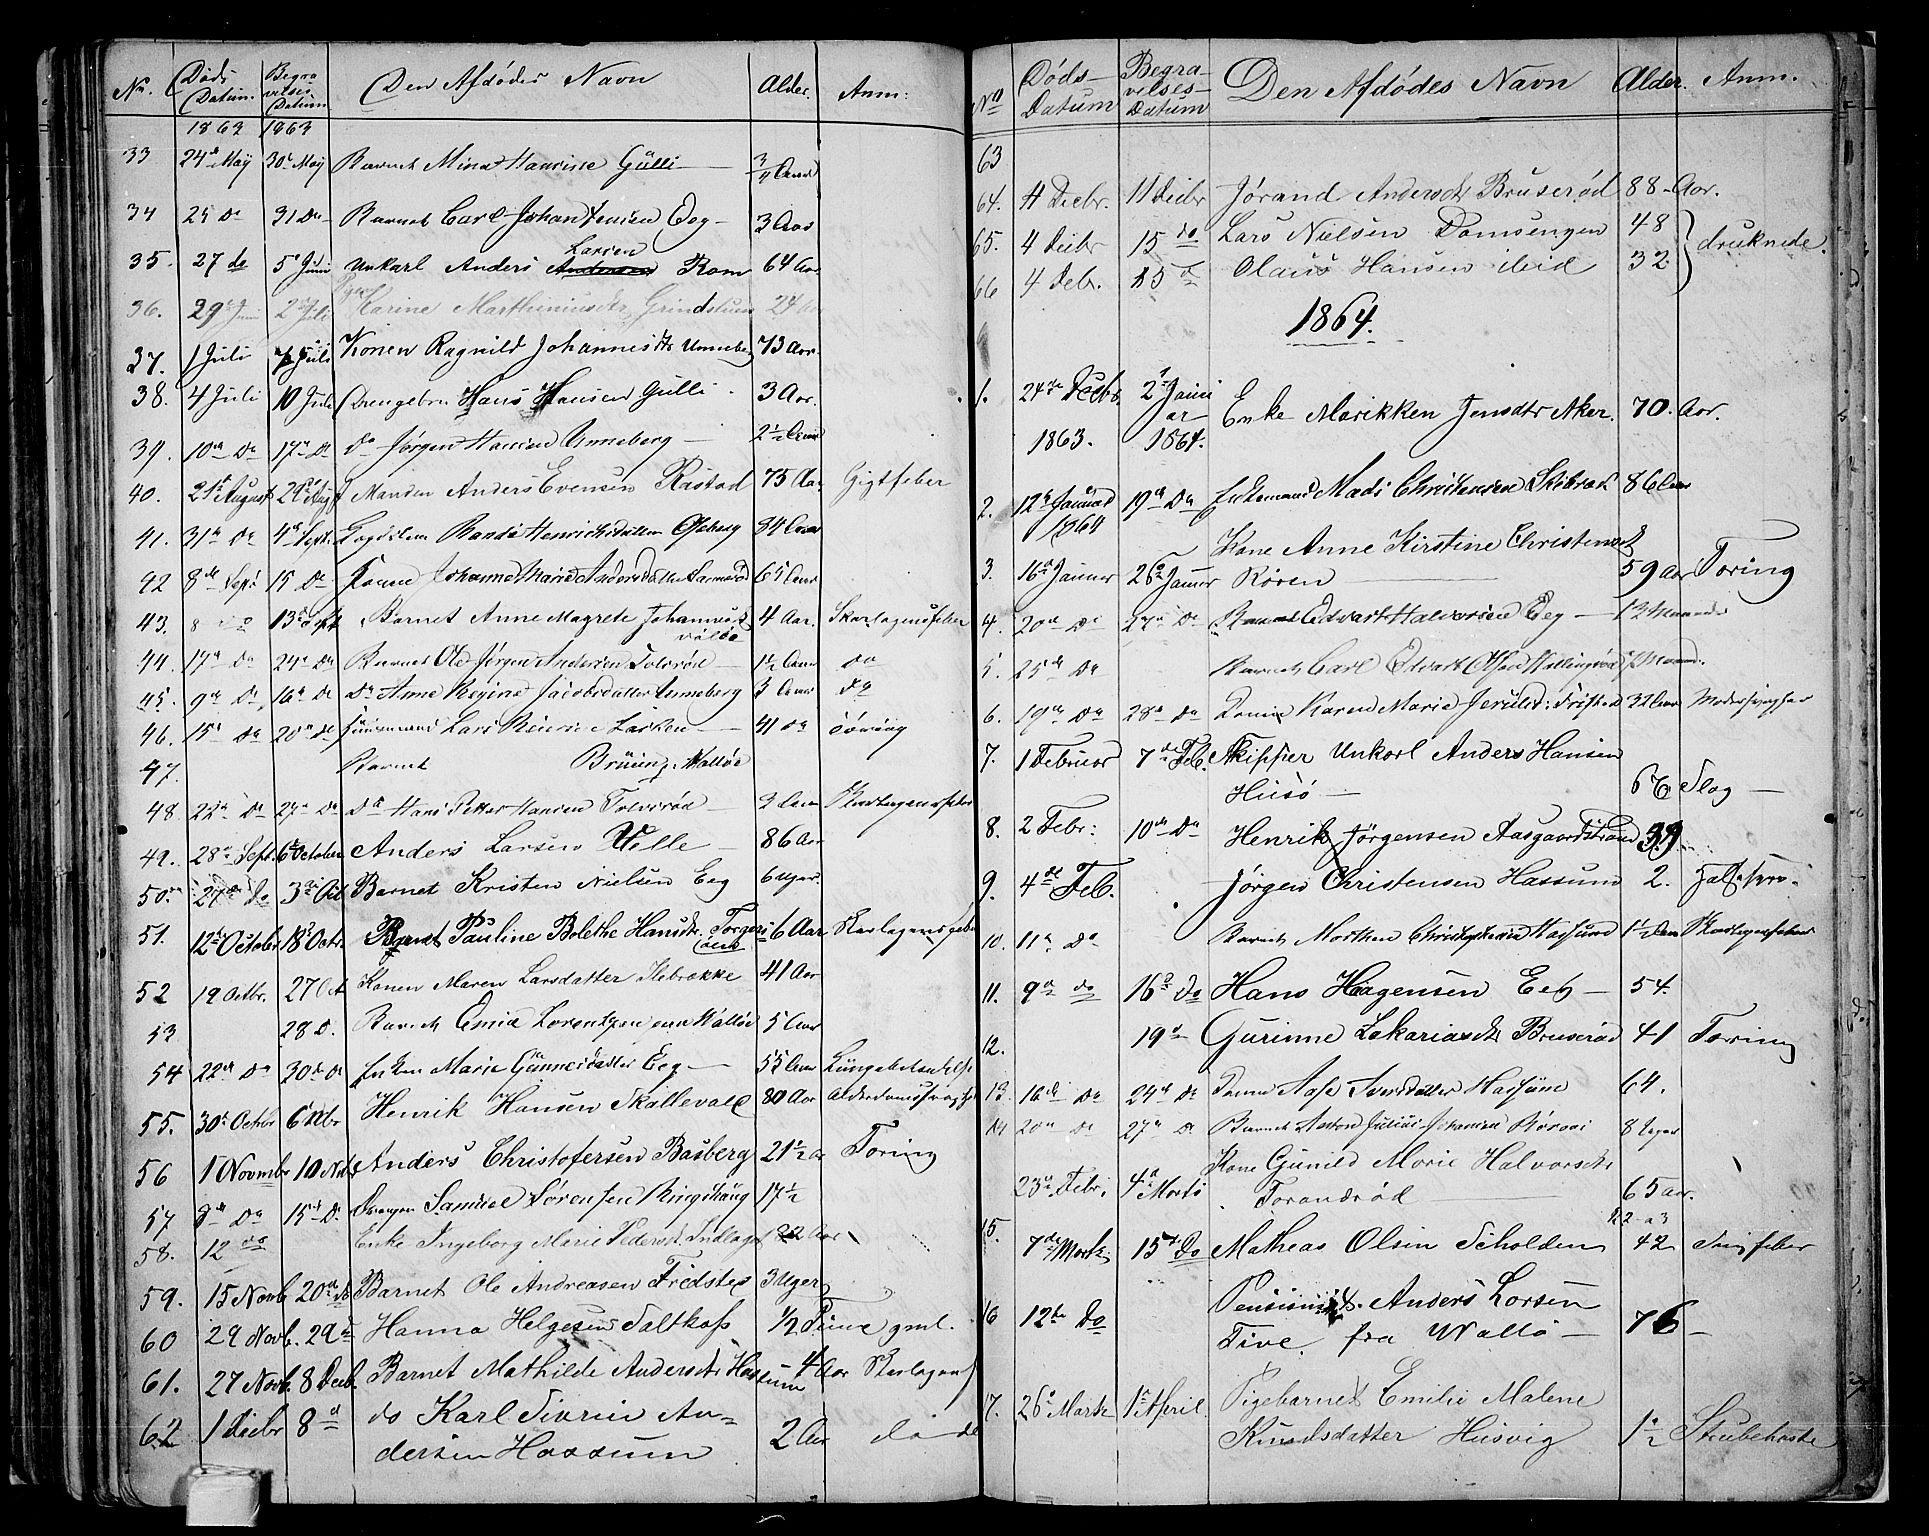 No. Døds Datum. Begravelses Datum Den Afdødes Navn Alder. Anm:
1863 1863
33 24d May 30d May Barnet Mina Gülli 3/4 Aar
34 25 Do 31 Do Barnet Carl Johan Jensen Eeg 3 Aar
35. 27 do 5 Juni Unkarl Anders Larsen Rom 64 Aar
36. 29 Juni 2 Juli Pigen Karine 24 Aar
37. 1 Juli 7 Juli Konen Ragnild Johannesdtr Unneberg 73 Aar.
38. 4 Juli 10 Juli Drengebrn Hans Hansen Gulli 3 Aar.
39. 10de Do 17de Do Do Jørgen Hansen Unneberg 2½ Aar
40. 21 August 29 Aug Manden Anders Evensen Råstad 75 Aar Gigtfeber
41. 31te Do 4de Sept. Henrichsdatter Oseberg 84 Aar
42 8de Sept 15 Do Johanne Marie 65 Aar
43. 8 Do 13de Sept Barnet Anne Magrete Johannesdt Vålø 4 Aar. Skarlagensfeber
44. 17de Do 24de Do Barnet Ole Jørgen Andersen Tolvsrød 1½ Aar do
45. 9de Do 16de Do Do Anne Regine Jacobsdatter Unneberg 3 Aar do
46. 15de Do 20de Do Lars 41 do Tæring
47. Barnet Valløe
48 22de Do 27de Do Do Hans Petter Hansen Tolvsrød 3 Aar Skarlagensfeber
49. 28de Sept. 6te October Anders Larsen Wølle 86 Aar
50. 27de Do 3die Oct Barnet Kristen Nielsen Eeg 6 Uger.
51. 12te Octobr 18de Octr. Barnet Pauline Bolethe Hansdtr. 6 Aar Skarlagensfeber
52 19 Octbr. 27 Oct Konen Maren Larsdatter Ilebrække 41 Aar
53 28 D. Barnet Lorentzen Valløe 5 Aar
54 22de Do 30de Do Enken Marie Gunnersdatter Eeg 55 Aar Lungebetændelse
55. 30te Octbr 6te Nbr Henrik Hansen Skallevald 80 Aar Alderdomssvaghed
56 1 Novmbr 10 Nvbr Anders Christofersen Basberg 21½ Aar Tæring
57 8de Do 15de Do Drengen Samuel Sørensen Ringshaug 17½
58. 12 do Enke Ingeborg Marie Pedersdt. 82 Aar
59. 15 Novb 20de do Barnet Ole Andreasen Fredstep 3 Uger
60 29 Novb. 29de Hanna Helgesen Saltkop ½ Time gml.
61. 27 Novb. 8 Decb. Barnet Mathilde Andersdtr Hassum 4 Aar Skarlagensf
62 1 Decbr 8de do Karl An-
dersen Hassum 2 Aar do do
No Døds-Datum Begravelses-Datum Den Afdødes Navn Alder. Anm.
63
64. 4 Decbr. 11 Decbr Jørand Andersdtr Bruserød 88 Aar.
65. 4 Decbr 15 do Lars Nielsen Damsengen 48
66 4 Debr. 15 do Olaus Hansen ibid 32 } druknede.
1864.
1. 24de Decb. 1863. 2den Januar 1864. Enke Marikken Jensdtr Aker. 70. Aar.
2. 12te Januar 1864 19de Do Enkemand Mads Christensen 86 Aar
Kone Anne Kirstine Christensdt
3. 16de Januar 26de Januar Røren 59 Aar Tæring
4. 20de Do 27de Do Barnet Edvart Halvorsen Eeg 13 Maaneder
5. 25de Do Barnet Carl Edvart Olsen
6. 19de Do 28de Do Konen Karen Marie 32 Aar
7. 1 Februar 7de Feb. Skipper Unkarl Anders Hansen
Husø 67 Slag
8. 2 Febr: 10de Do Henrik Jørgensen Aasgaardstrand 39
9. 4de Feb. Jørgen Christensen Hassum 2. Halssyge
10. 11te Do Barnet Morthen Hassum 1½ Aar Skarlagensfeber
11. 9de do 16de do Hans Haagensen Eeg 54.
12. 19de Gurinne Zakariasdtr Bruserød 41 Tæring
13. 16de Do 24de Do Konen Aase Iversdatter Hassum 64.
14 20de Do 27de Do Barnet Anton Julius Johansen 8 Uger
Kone Gunild Marie Halvorsdtr
23de Febr. 4de Marts Torandrød 65 Aar.
15. 7de Marts 15de Do Mathias Olsen Scholden 42
16 12te Do Anders Larsen
Five. fra Wallø 76
17. 26de Marts 1ste April. Pigebarnet Emilie Malene
Knudsdatter Husvig 1½ Strubehoste